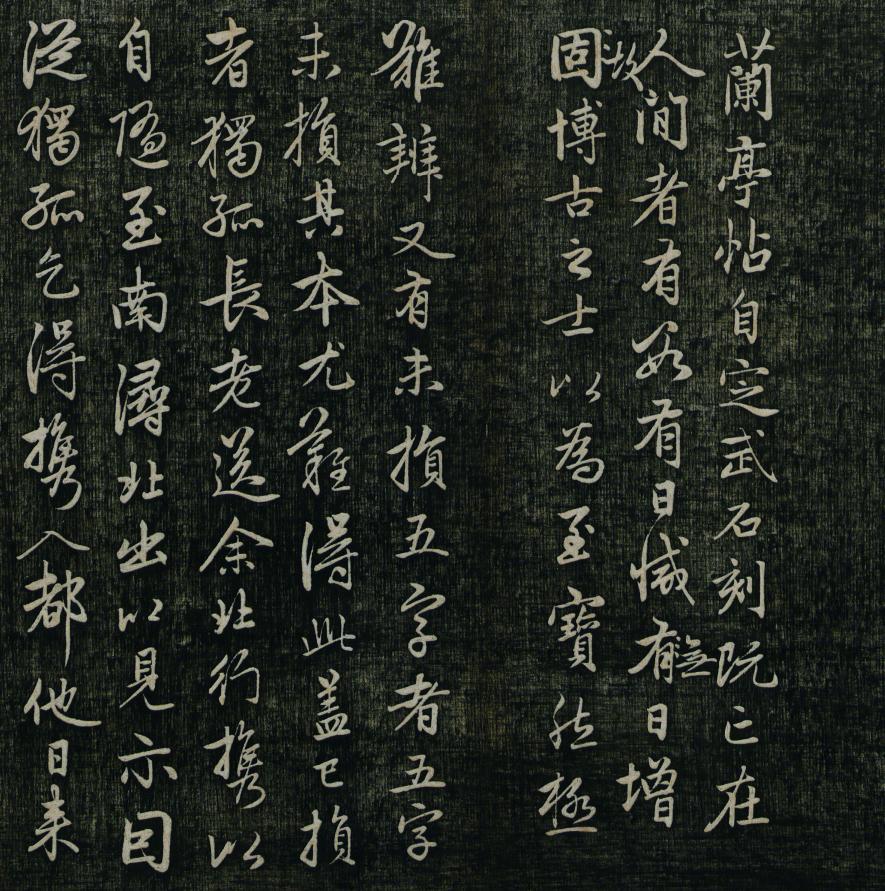 蘭亭帖自定武石刻既亡在
人間者有數有日減有無日增
固故博古之士以為至寶然極
難辨又有未損五字者五字
未損其本尤難得此蓋已損
者獨孤長老送余北行攜以
自隨至南潯北出以見示因
從獨孤乞得攜入都他日来